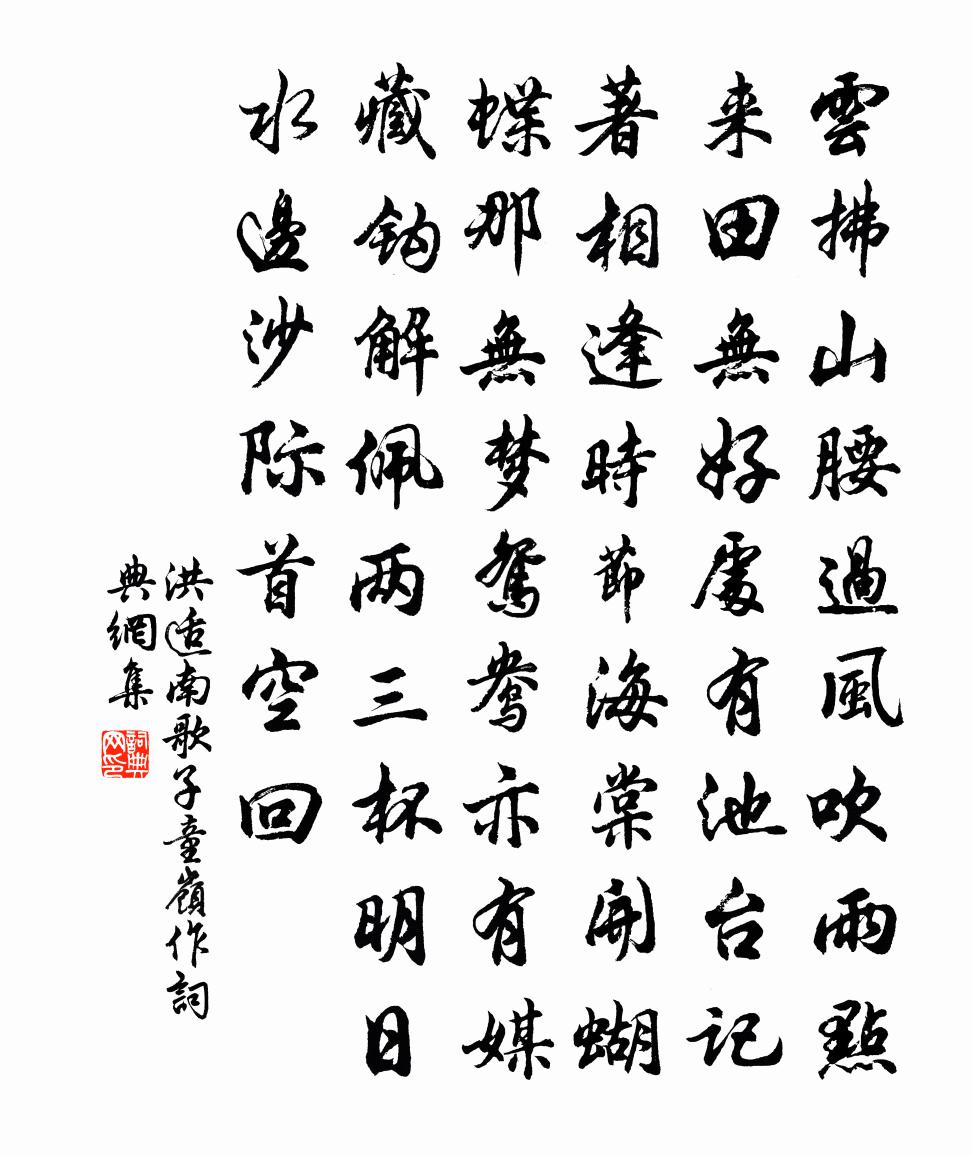 雲拂山腰過風吹雨點
来田無好處有池台記
著相逢時節海棠開蝴
蝶那無梦鴛鴦亦有媒
藏鈎解佩两三杯明日
水邊沙际首空回
洪适南歌子童嶺作詞
典網集
詞典网印